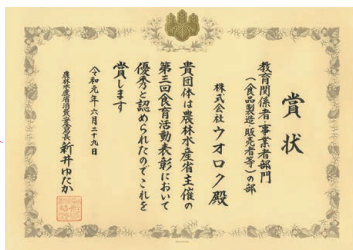 賞状
教育関係者・事業者部門
(食品製造・販売者等)の部
株式会社ウオロク殿
貴団体は農林水産省主催の
第三回食育活動表彰において
優秀と認められたのでこれを
賞します
令和元年六月二十九日
農林水産省消費・安全局長 新井ゆたか